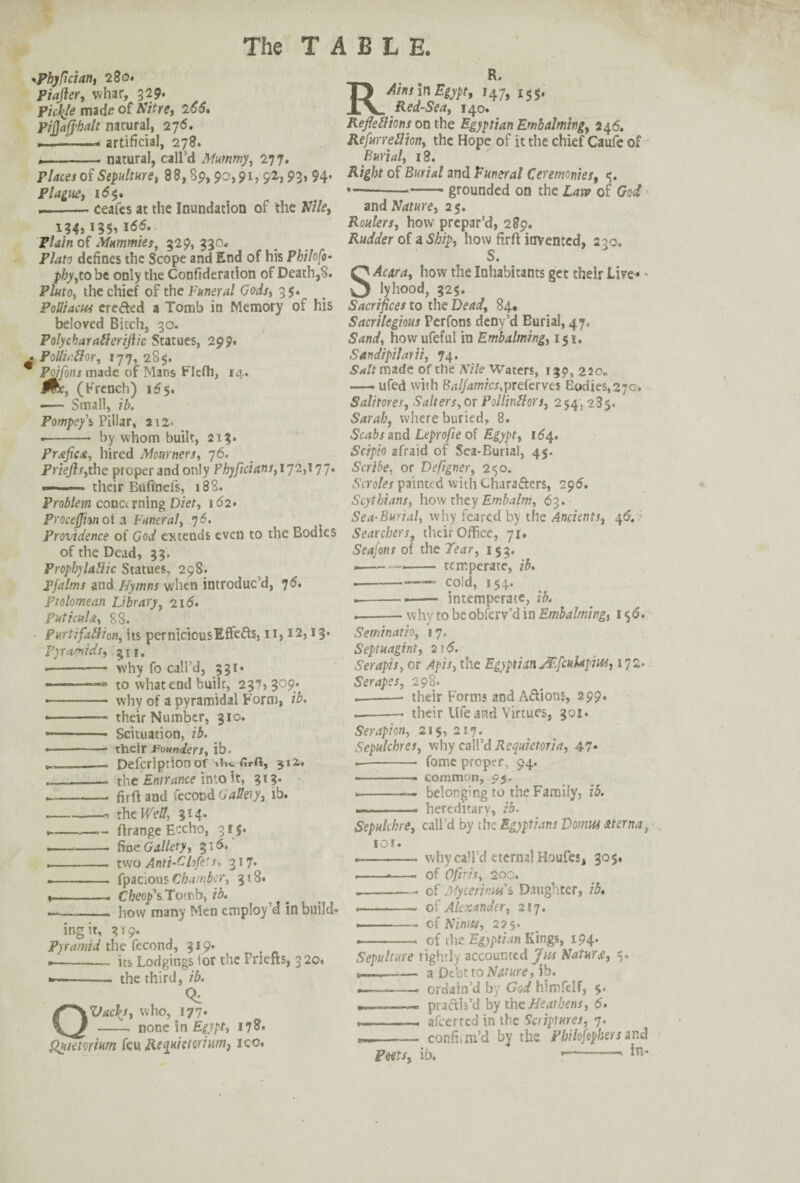 The TABLE.
Phyſician, 280.
Piaſter, what, 329.
Pickle made of Nitre, 266.
Piſſaſphalt natural, 276.
—— artificial, 278.
—— natural, call'd Mummy, 277.
Places of Sepulture, 88, 89, 90, 91, 92, 93, 94.
Plague, 165.
—— ceaſes at the Inundation of the Nile,
134, 135, 166.
Plain of Mummies, 329, 330.
Plato defines the Scope and End of his Philoſo-
phy, to be only the Conſideration of Death, 8.
Pluto, the chief of the Funeral Gods, 35.
Polliacus erected a Tomb in Memory of his
beloved Bitch, 30.
Polycharacteriſtic Statues, 299.
Pollinctor, 177, 285.
Poiſons made of Mans Fleſh, 14.
(French) 165.
—— Small, ib.
Pompey's Pillar, 212.
—— by whom built, 213.
Præficæ, hired Mourners, 76.
Prieſts, the proper and only Phyſicians, 172, 177.
—— their Buſineſs, 188.
Problem concerning Diet, 162.
Proceſſion of a Funeral, 76.
Providence of God extends even to the Bodies
of the Dead, 33.
Prophylactic Statues, 298.
Pſalms and Hymns when introduc'd, 76.
Ptolomean Library, 216.
Puticulæ, 88.
Purtifaction, its pernicious Effects, 11, 12, 13.
Pyramids, 311.
—— why ſo call'd, 331.
—— to what end built, 237, 309.
—— why of a pyramidal Form, ib.
—— their Number, 310.
—— Scituation, ib.
—— their Founders, ib.
—— Deſcription of the firſt, 312.
—— the Entrance into it, 313.
—— firſt and ſecond Gallery, ib.
—— the Well, 314.
—— ſtrange Eccho, 315.
—— fine Gallery, 316.
—— two Anti-Cloſets, 317.
—— ſpacious Chamber, 318.
—— Cheop's Tomb, ib.
—— how many Men employ'd in build-
ing it, 319.
Pyramid the ſecond, 319.
—— its Lodgings for the Prieſts, 320.
—— the third, ib.
Q.
QVacks, who, 177.
—— none in Egypt, 178.
Quietorium ſeu Requietorium, 100.
R.
RAins in Egypt, 147, 155.
Red-Sea, 140.
Reflections on the Egyptian Embalming, 246.
Reſurrection, the Hope of it the chief Cauſe of
Burial, 18.
Right of Burial and Funeral Ceremonies, 5.
—— grounded on the Law of God
and Nature, 25.
Roulers, how prepar'd, 289.
Rudder of a Ship, how firſt invented, 230.
S.
SAcara, how the Inhabitants get their Live-
lyhood, 325.
Sacrifices to the Dead, 84.
Sacrilegious Perſons deny'd Burial, 47.
Sand, how uſeful in Embalming, 151.
Sandipilarii, 74.
Salt made of the Nile Waters, 139, 220.
—— uſed with Balſamics, preſerves Bodies, 270.
Salitores, Salters, or Pollinctors, 254, 285.
Sarah, where buried, 8.
Scabs and Leproſie of Egypt, 164.
Scipio afraid of Sea-Burial, 45.
Scribe, or Deſigner, 250.
Scroles painted with Characters, 296.
Scythians, how they Embalm, 63.
Sea-Burial, why feared by the Ancients, 46.
Searchers, their Office, 71.
Seaſons of the Year, 153.
—— temperate, ib.
—— cold, 154.
—— intemperate, ib.
—— why to be obſerv'd in Embalming, 156.
Seminatio, 17.
Septuagint, 216.
Serapis, or Apis, the Egyptian Æſculapius, 172.
Serapes, 298.
—— their Forms and Actions, 299.
—— their Uſe and Virtues, 301.
Serapion, 215, 217.
Sepulchres, why call'd Requietoria, 47.
—— ſome proper, 94.
—— common, 95.
—— belonging to the Family, ib.
—— hereditary, ib.
Sepulchre, call'd by the Egyptians Domus æterna,
101.
—— why call'd eternal Houſes, 305.
—— of Oſiris, 200.
—— of Mycerinus's Daughter, ib.
—— of Alexander, 217.
—— of Ninus, 225.
—— of the Egyptian Kings, 194.
Sepulture rightly accounted Jus Naturæ, 5.
—— a Debt to Nature, ib.
—— ordain'd by God himſelf, 5.
—— practis'd by the Heathens, 6.
—— aſcerted in the Scriptures, 7.
—— confirm'd by the Philoſophers and
Poets, ib. —— in-